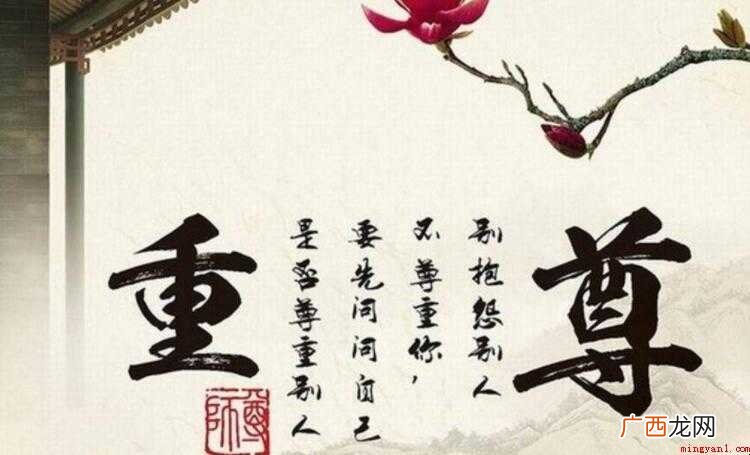 尊
别抱怨别人
不尊重你，
要先问问自己
是否尊重别人
重
尊师
广西龙网
mingyan1.com